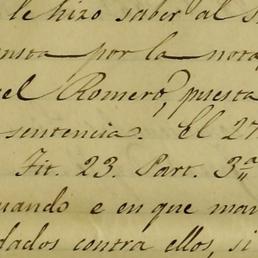 le hizo saber al
por la nota
el Romero, puesta
sentencia. El 27
Tit. 23. Part. 3ª
uando e en que man
dados contra ellos, si